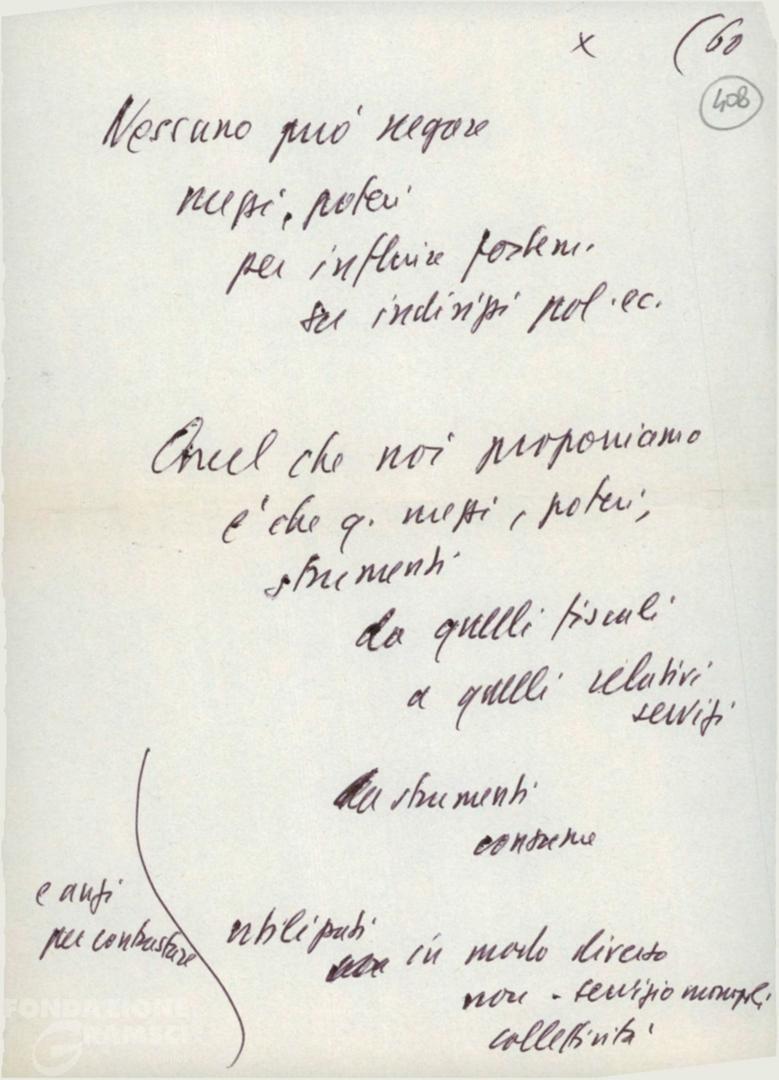 x (60
408
Nessuno può negare
mezzi, poteri
per influire fortem.
su indirizzi pol. ec.
Quel che noi proponiamo
è che q. mezzi, poteri,
strumenti
da quelli fiscali
a quelli relativi
servizi
da strumenti
consume
e anzi
per contrastare
utilizzati
in modo diverso
non - servizio monopoli
collettività
FONDAZIONE
GRAMSCI